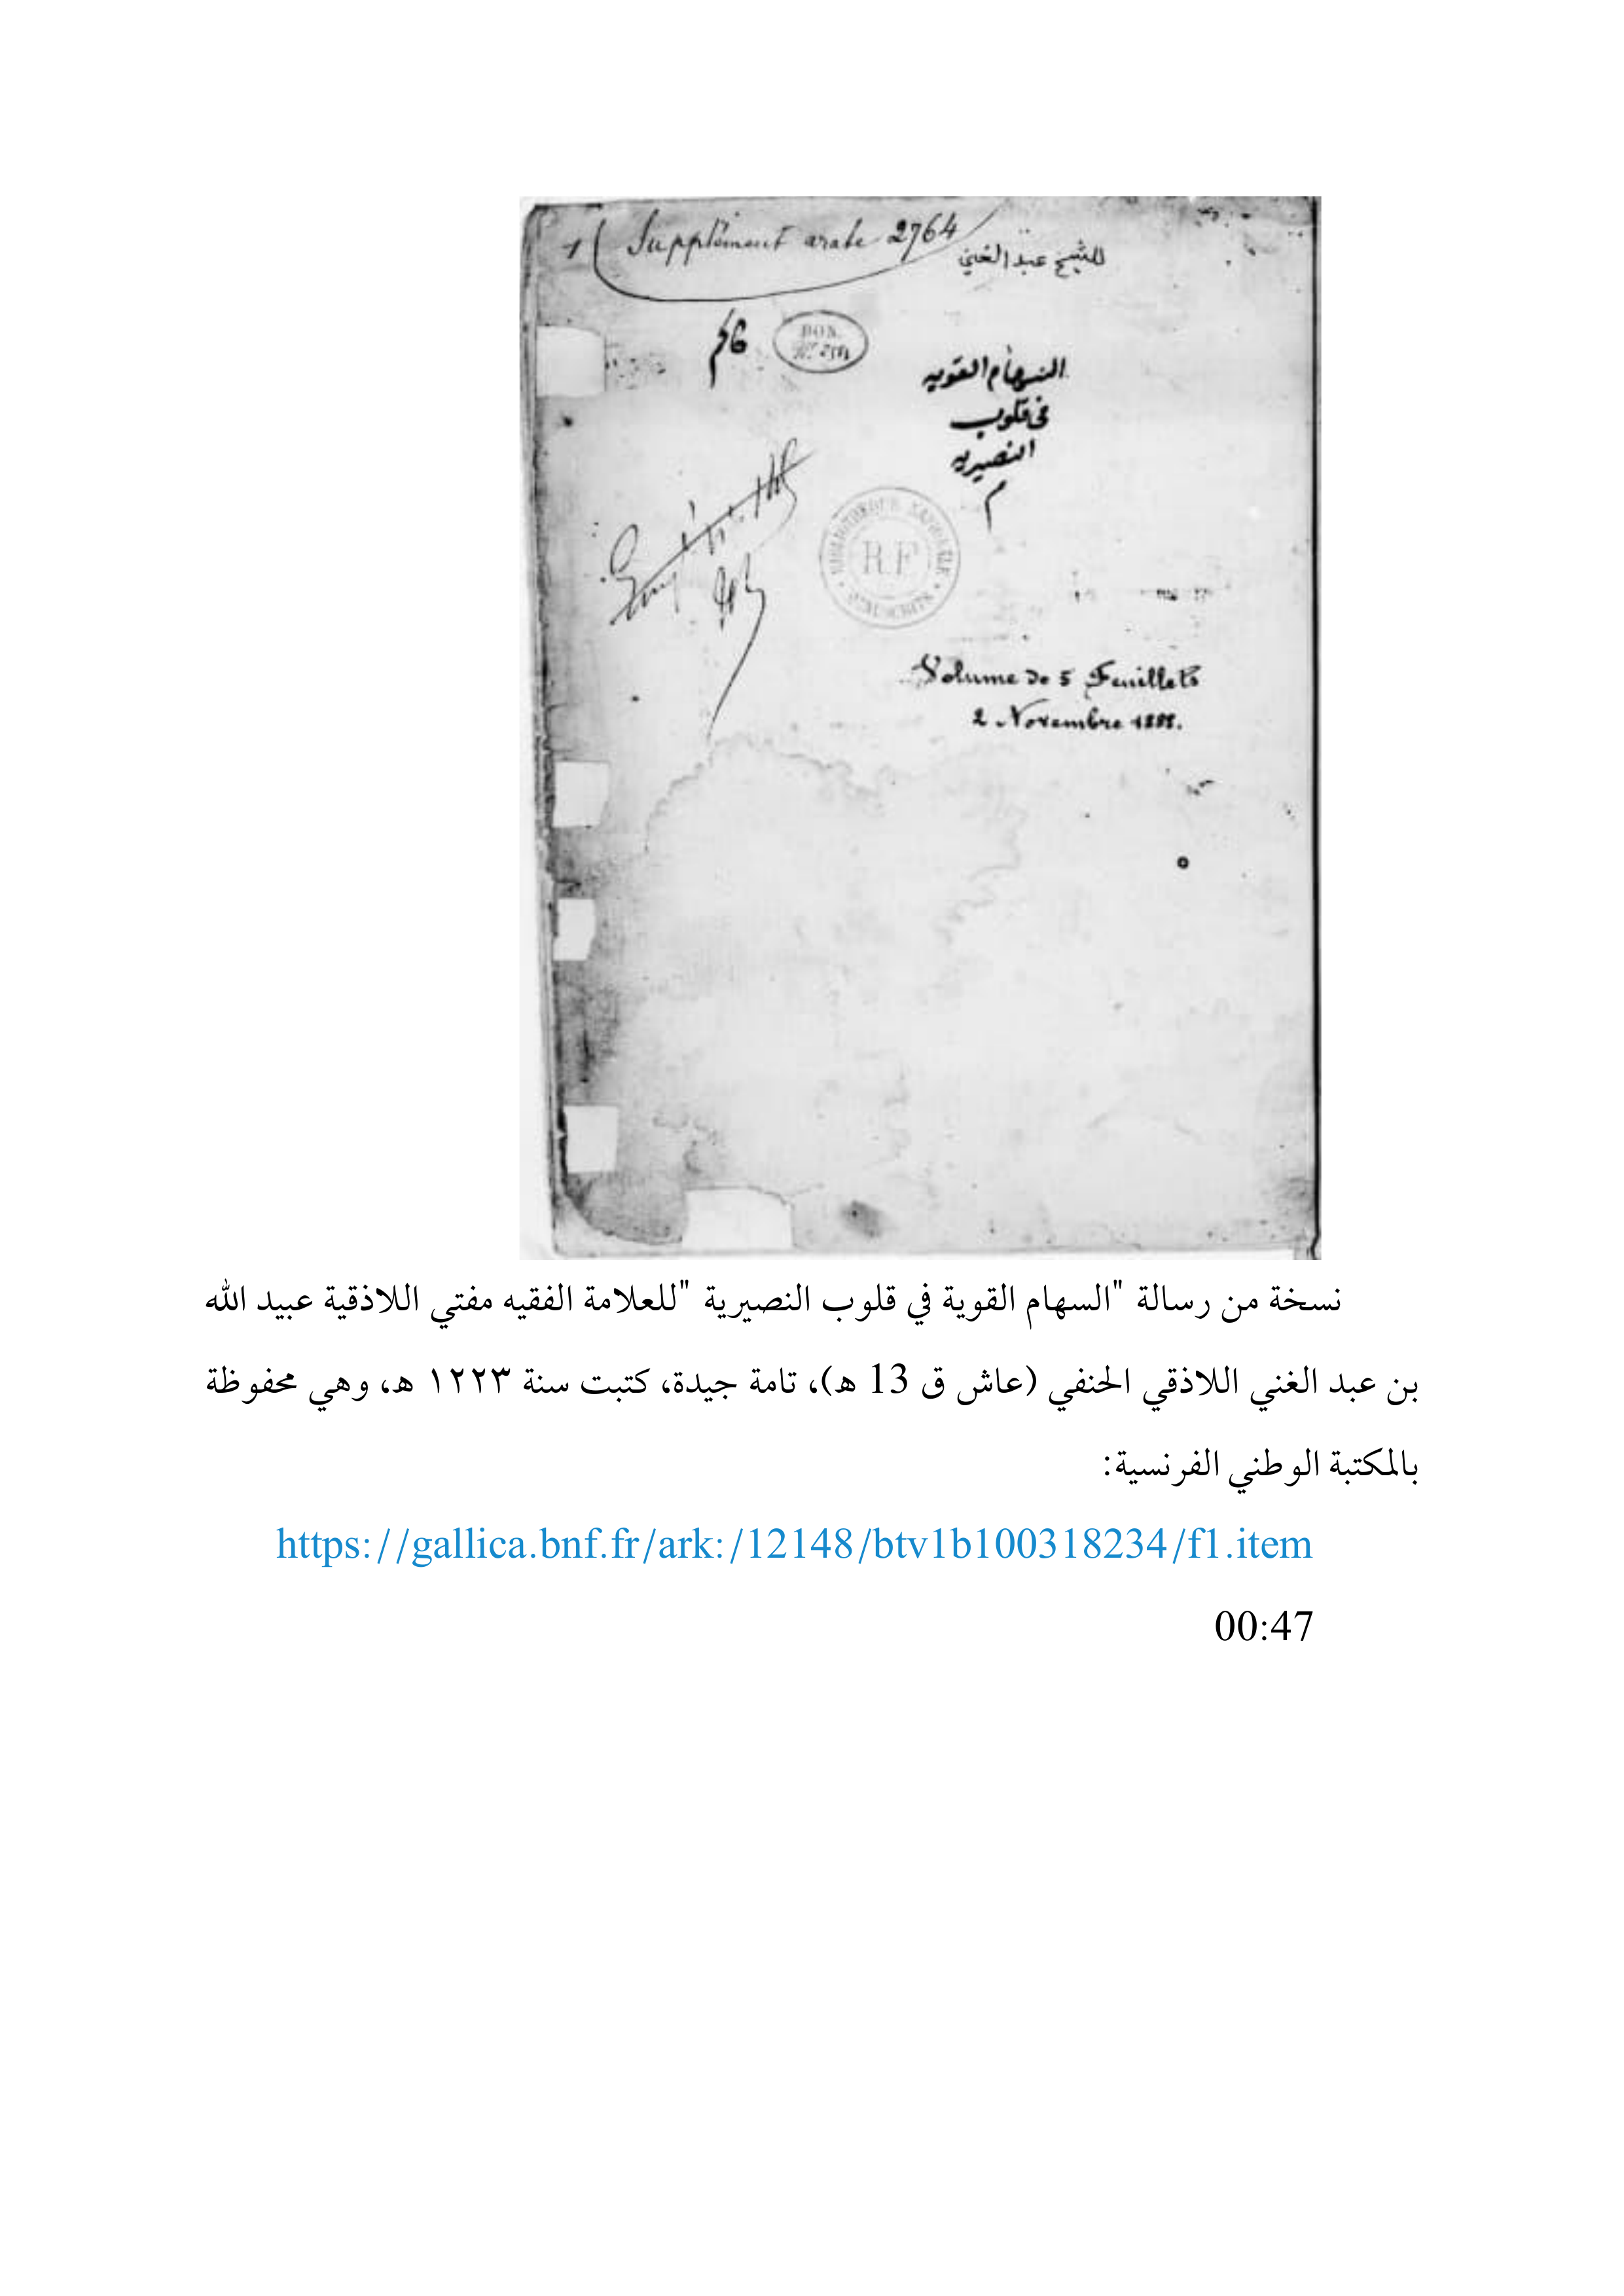 1 ( Supplément arabe 2764
للشيخ عبد الغني
DON.
السهام القويه
في قلوب
النصيريه
م
BIBLIOTHEQUE NATIONALE
R.F
MANUSCRITS
Volume de 5 Feuillets
2 Novembre 1888.
نسخة من رسالة "السهام القوية في قلوب النصيرية "للعلامة الفقيه مفتي اللاذقية عبيد الله
بن عبد الغني اللاذقي الحنفي (عاش ق 13 ه)، تامة جيدة، كتبت سنة ١٢٢٣ ه، وهي محفوظة
بالمكتبة الوطني الفرنسية:
https://gallica.bnf.fr/ark:/12148/btv1b100318234/f1.item
00:47